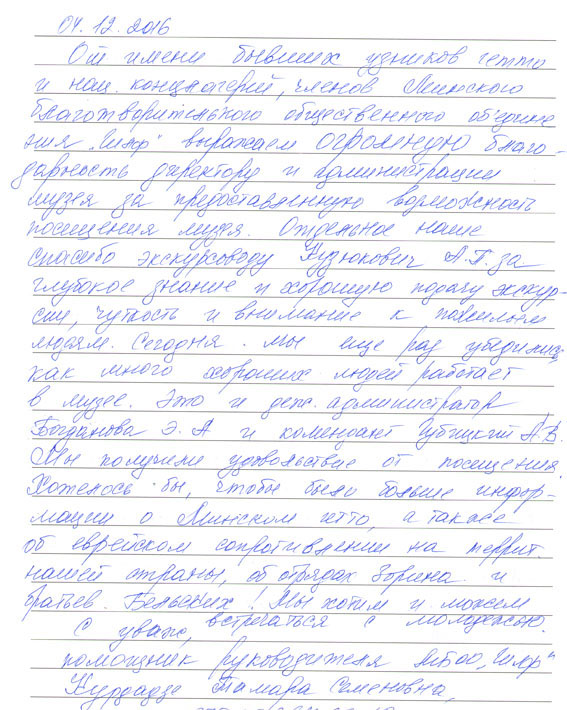 04.12.2016
От имени бывших узников гетто
и нац. концлагерей, членов Минского
благотворительного общественного об'едине
ния "Гилф" выражаем огромную благо-
дарность директору и администрации
музея за предоставленную возможность
посещения музея. Отдельное наше
спасибо экскурсоводу Кузюкович А.П. за
глубокое знание и хорошую подачу экскур-
сии, чуткость и внимание к пожилым
людям. Сегодня мы еще раз убедились
как много хороших людей работает
в музее. Это и деж. администратор
Богданова Э.А и комендант Губицкий А.В.
Мы получили удовольствие от посещения.
Хотелось бы, чтобы было больше инфор-
мации о Минском гетто, а также
об еврейском сопротивлении на террит.
нашей страны, об отрядах Зорина и
братьев Бельских! Мы хотим и можем
встречаться с молодежью.
С уваж,
помощник руководителя МБОО "Гилф"
Курдадзе Тамара Семеновна,